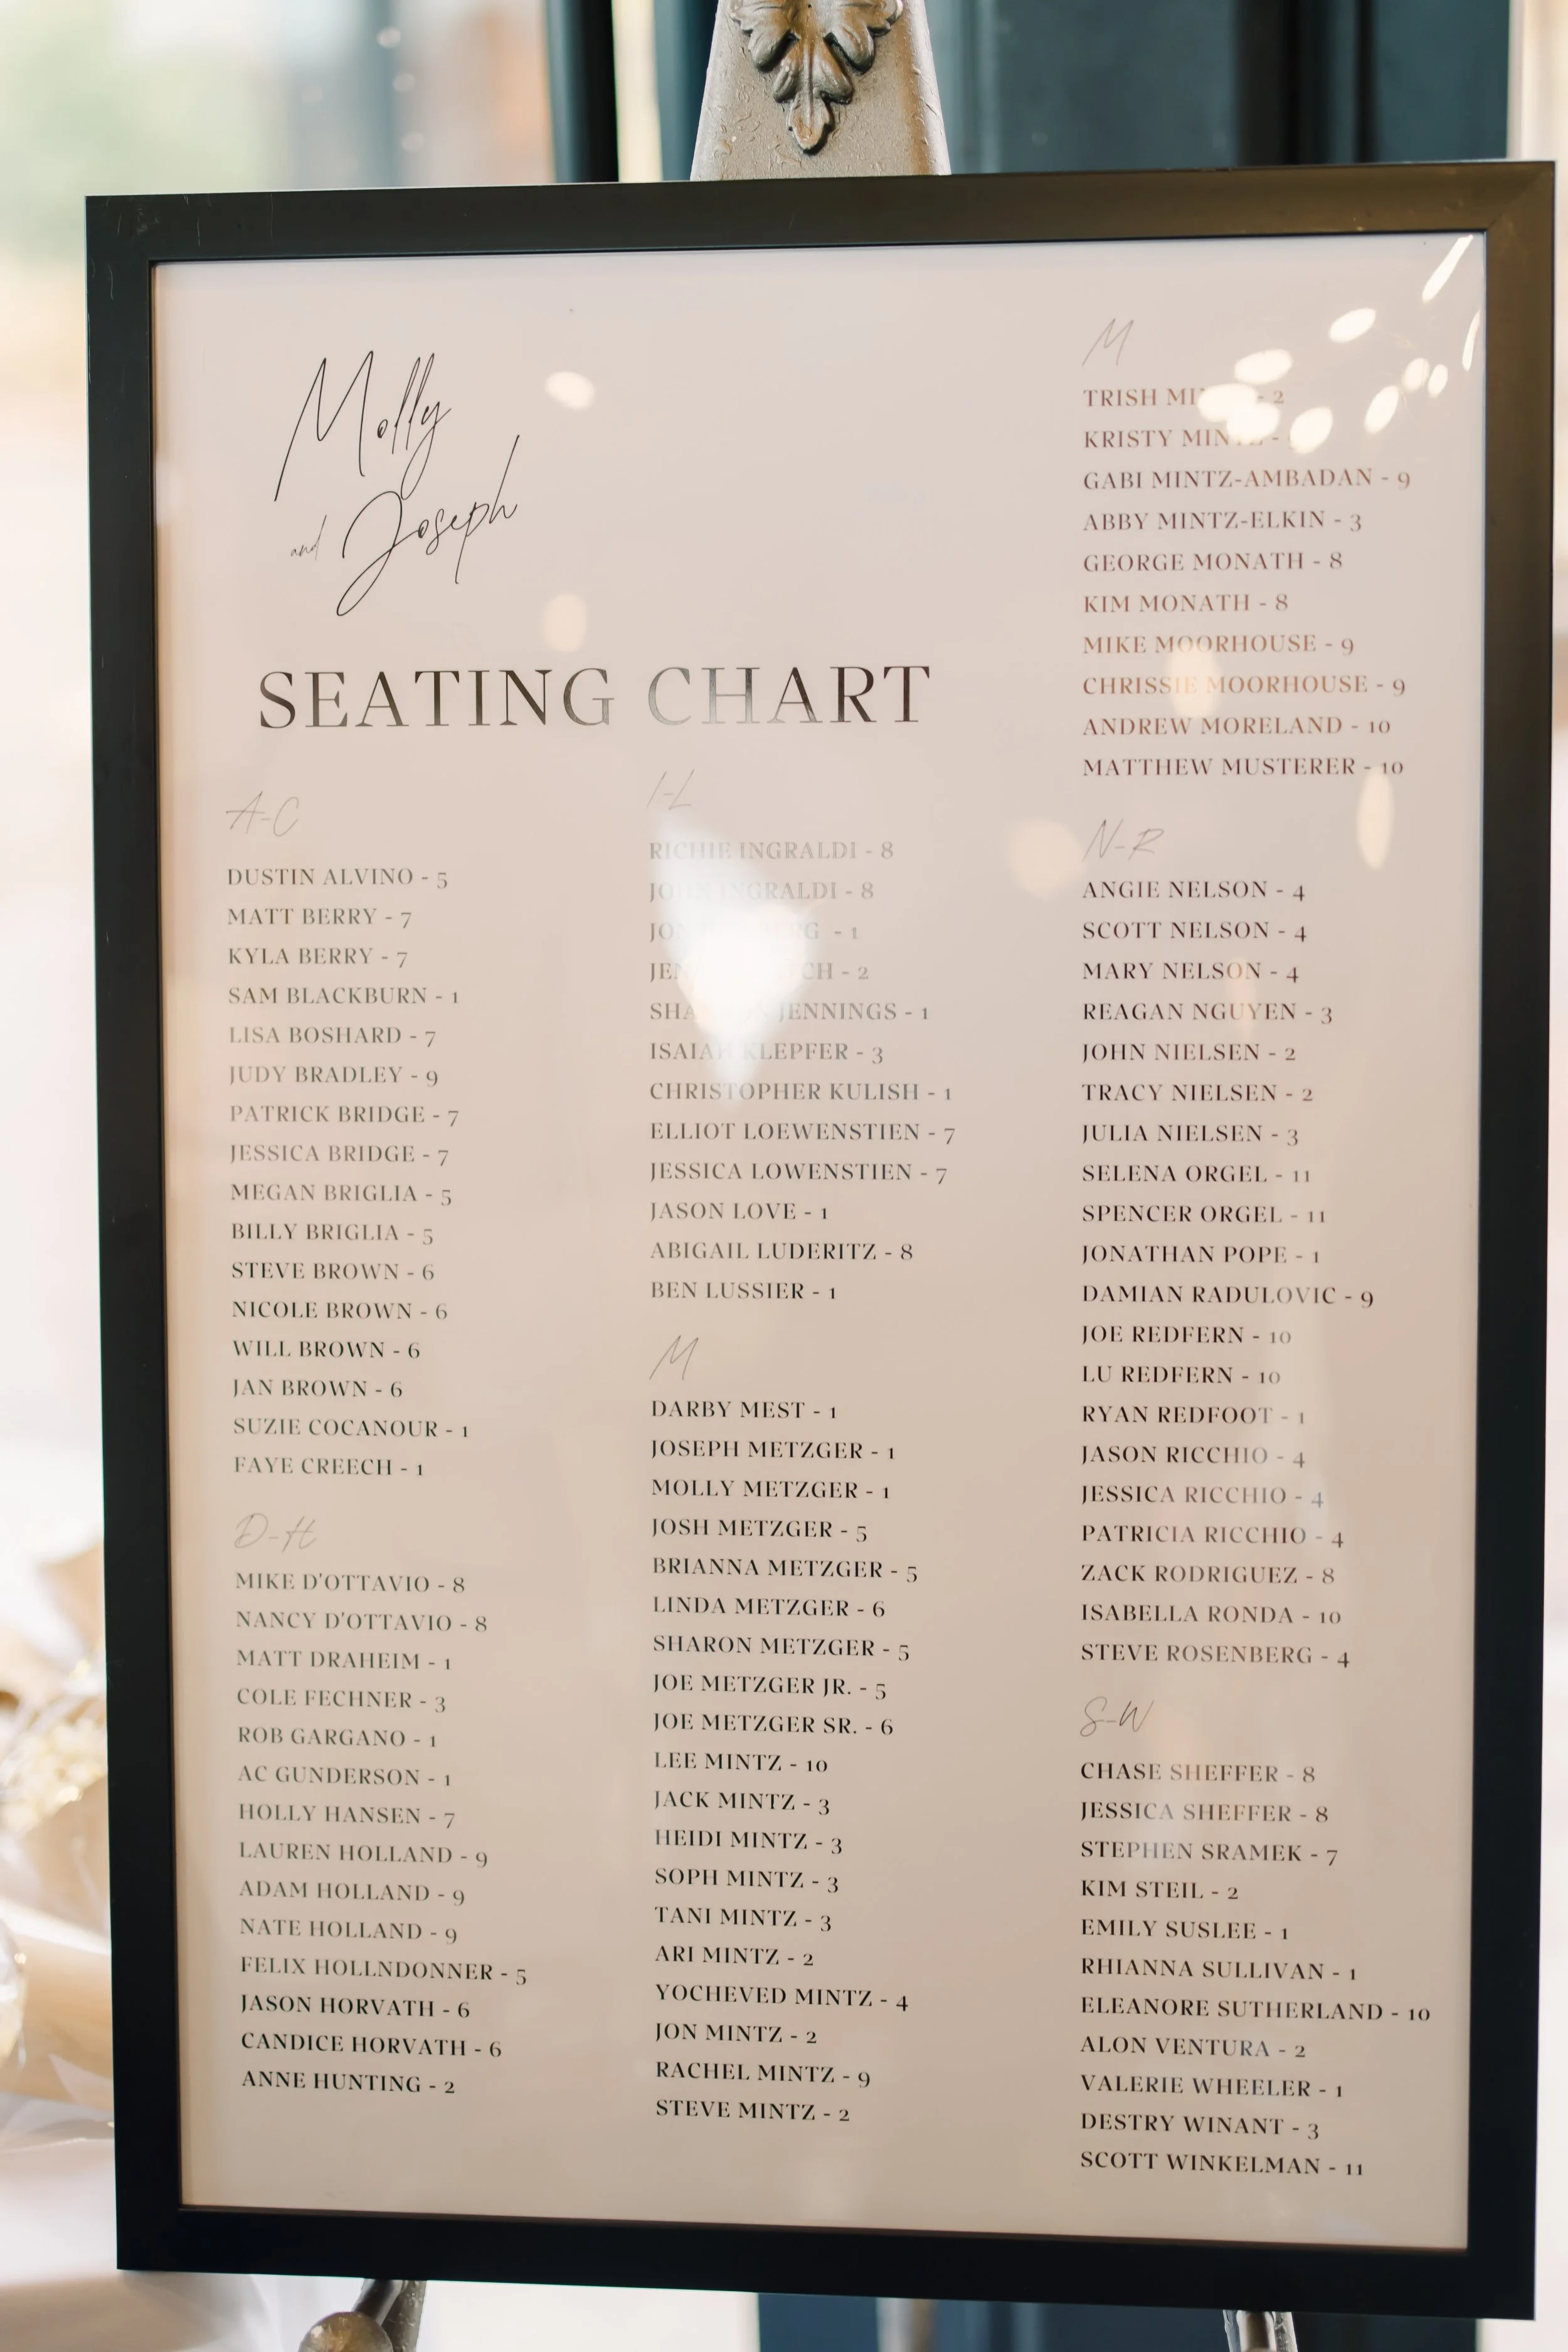 Molly
and Joseph
SEATING CHART
A-C
DUSTIN ALVINO - 5
MATT BERRY - 7
KYLA BERRY - 7
SAM BLACKBURN - 1
LISA BOSHARD - 7
JUDY BRADLEY - 9
PATRICK BRIDGE - 7
JESSICA BRIDGE - 7
MEGAN BRIGLIA - 5
BILLY BRIGLIA - 5
STEVE BROWN - 6
NICOLE BROWN - 6
WILL BROWN - 6
JAN BROWN - 6
SUZIE COCANOUR - 1
FAYE CREECH - 1
D-H
MIKE D'OTTAVIO - 8
NANCY D'OTTAVIO - 8
MATT DRAHEIM - 1
COLE FECHNER - 3
ROB GARGANO - 1
AC GUNDERSON - 1
HOLLY HANSEN - 7
LAUREN HOLLAND - 9
ADAM HOLLAND - 9
NATE HOLLAND - 9
FELIX HOLLNDONNER - 5
JASON HORVATH - 6
CANDICE HORVATH - 6
ANNE HUNTING - 2
I-L
RICHIE INGRALDI - 8
JOHN INGRALDI - 8
- 1
- 2
JENNINGS - 1
ISAIAH KLEPFER - 3
CHRISTOPHER KULISH - 1
ELLIOT LOEWENSTIEN - 7
JESSICA LOWENSTIEN - 7
JASON LOVE - 1
ABIGAIL LUDERITZ - 8
BEN LUSSIER - 1
M
DARBY MEST - 1
JOSEPH METZGER - 1
MOLLY METZGER - 1
JOSH METZGER - 5
BRIANNA METZGER - 5
LINDA METZGER - 6
SHARON METZGER - 5
JOE METZGER JR. - 5
JOE METZGER SR. - 6
LEE MINTZ - 10
JACK MINTZ - 3
HEIDI MINTZ - 3
SOPH MINTZ - 3
TANI MINTZ - 3
ARI MINTZ - 2
YOCHEVED MINTZ - 4
JON MINTZ - 2
RACHEL MINTZ - 9
STEVE MINTZ - 2
M
TRISH - 2
KRISTY MINTZ -
GABI MINTZ-AMBADAN - 9
ABBY MINTZ-ELKIN - 3
GEORGE MONATH - 8
KIM MONATH - 8
MIKE MOORHOUSE - 9
CHRISSIE MOORHOUSE - 9
ANDREW MORELAND - 10
MATTHEW MUSTERER - 10
N-R
ANGIE NELSON - 4
SCOTT NELSON - 4
MARY NELSON - 4
REAGAN NGUYEN - 3
JOHN NIELSEN - 2
TRACY NIELSEN - 2
JULIA NIELSEN - 3
SELENA ORGEL - 11
SPENCER ORGEL - 11
JONATHAN POPE - 1
DAMIAN RADULOVIC - 9
JOE REDFERN - 10
LU REDFERN - 10
RYAN REDFOOT - 1
JASON RICCHIO - 4
JESSICA RICCHIO - 4
PATRICIA RICCHIO - 4
ZACK RODRIGUEZ - 8
ISABELLA RONDA - 10
STEVE ROSENBERG - 4
S-W
CHASE SHEFFER - 8
JESSICA SHEFFER - 8
STEPHEN SRAMEK - 7
KIM STEIL - 2
EMILY SUSLEE - 1
RHIANNA SULLIVAN - 1
ELEANORE SUTHERLAND - 10
ALON VENTURA - 2
VALERIE WHEELER - 1
DESTRY WINANT - 3
SCOTT WINKELMAN - 11